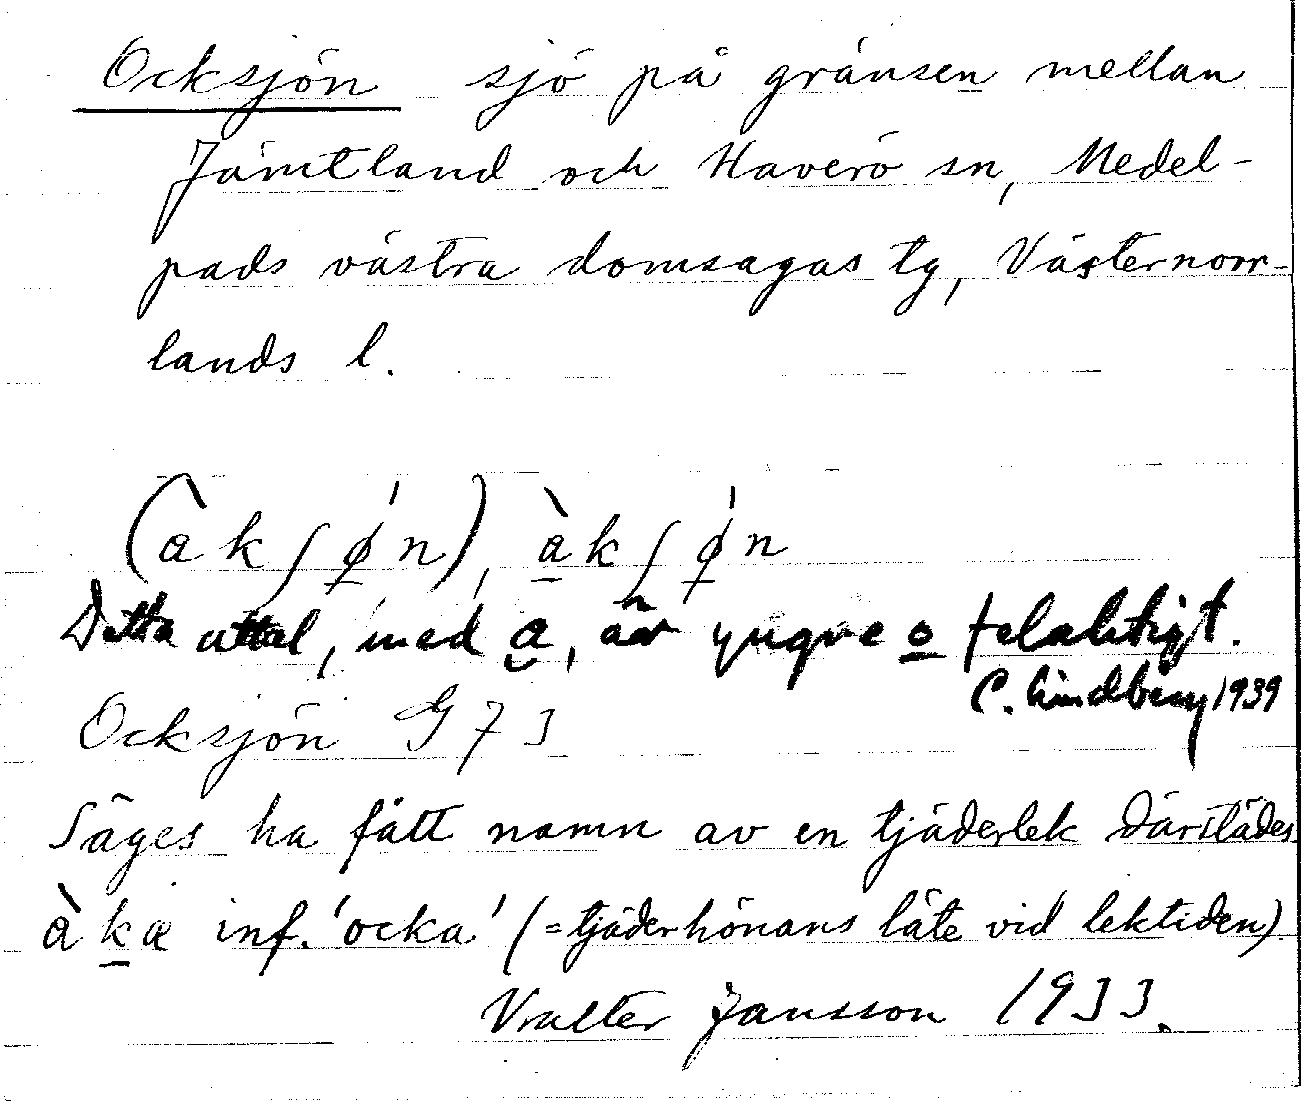 Ocksjön sjö på gränsen mellan
Jämtland och Haverö sn, Medel-
pads västra domsagas tg, Västernorr-
lands l.
(àkʃø̀n), àkʃø̀n
Detta uttal, med a, är yngre o felaktigt.
C. Lindberg 1939
Ocksjön G73
Säges ha fått namn av en tjäderlek därstädes
àkæ inf. 'ocka' (=tjäderhönans läte vid lektiden)
Valter Jansson 1933.